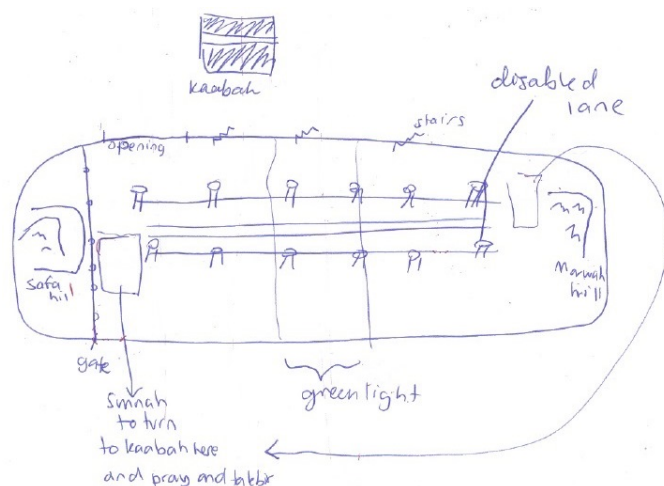 kaabah
disabled
lane
stairs
opening
Safa
hill
Marwah
hill
gate
greenlight
Sunnah
to turn
to kaabah here
and pray and takbir